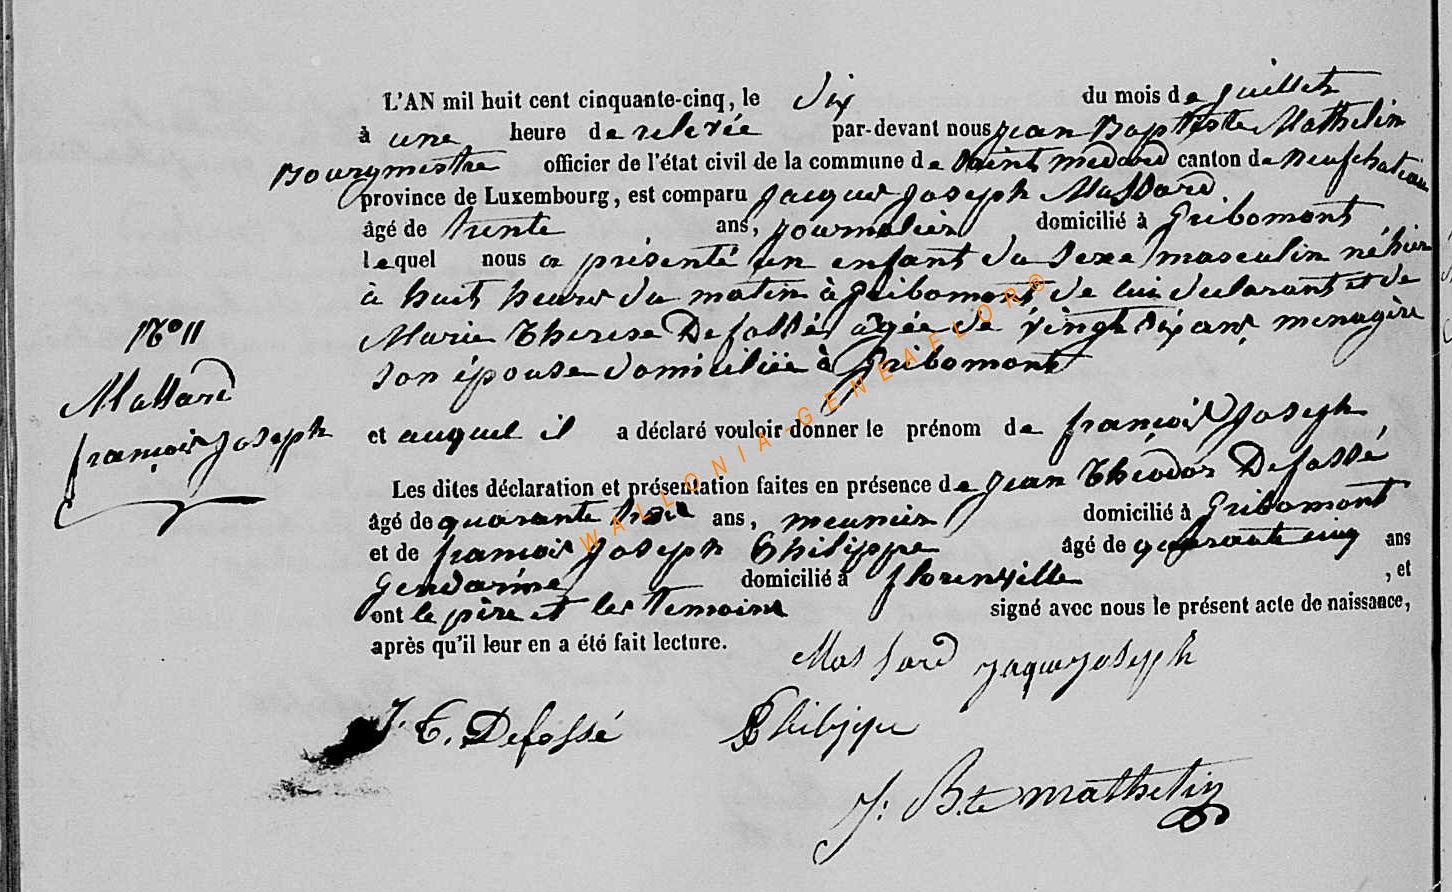 L'AN mil huit cent cinquante-cinq, le dix du mois de juillet
à une heure de relevée par-devant nous jean Baptiste Mathelin
Bourgmestre officier de l'état civil de la commune de Saint medard canton de neufchateau
province de Luxembourg, est comparu jacques joseph Massard
âgé de trente ans, journalier domicilié à Gribomont
lequel nous a présenté un enfant du sexe masculin né hier
à huit heures du matin à Gribomont de lui declarant et de
Marie Therese Defossé agée de vingt six ans, menagère
son épouse domiciliée à Gribomont
N° 11
Massard
françois joseph
et auquel il a déclaré vouloir donner le prénom de françois joseph
Les dites déclaration et présentation faites en présence de jean Théodor Defossé
âgé de quarante trois ans, meunier domicilié à Gribomont
et de françois joseph Philippe âgé de quarante cinq ans
Gendarme domicilié à florenville , et
ont le père et les temoins signé avec nous le présent acte de naissance,
après qu'il leur en a été fait lecture.
Massard jaque joseph
J. T. Defossé Philippe
J: B.te mathelin
WALLONIA-GENEAFLOR®